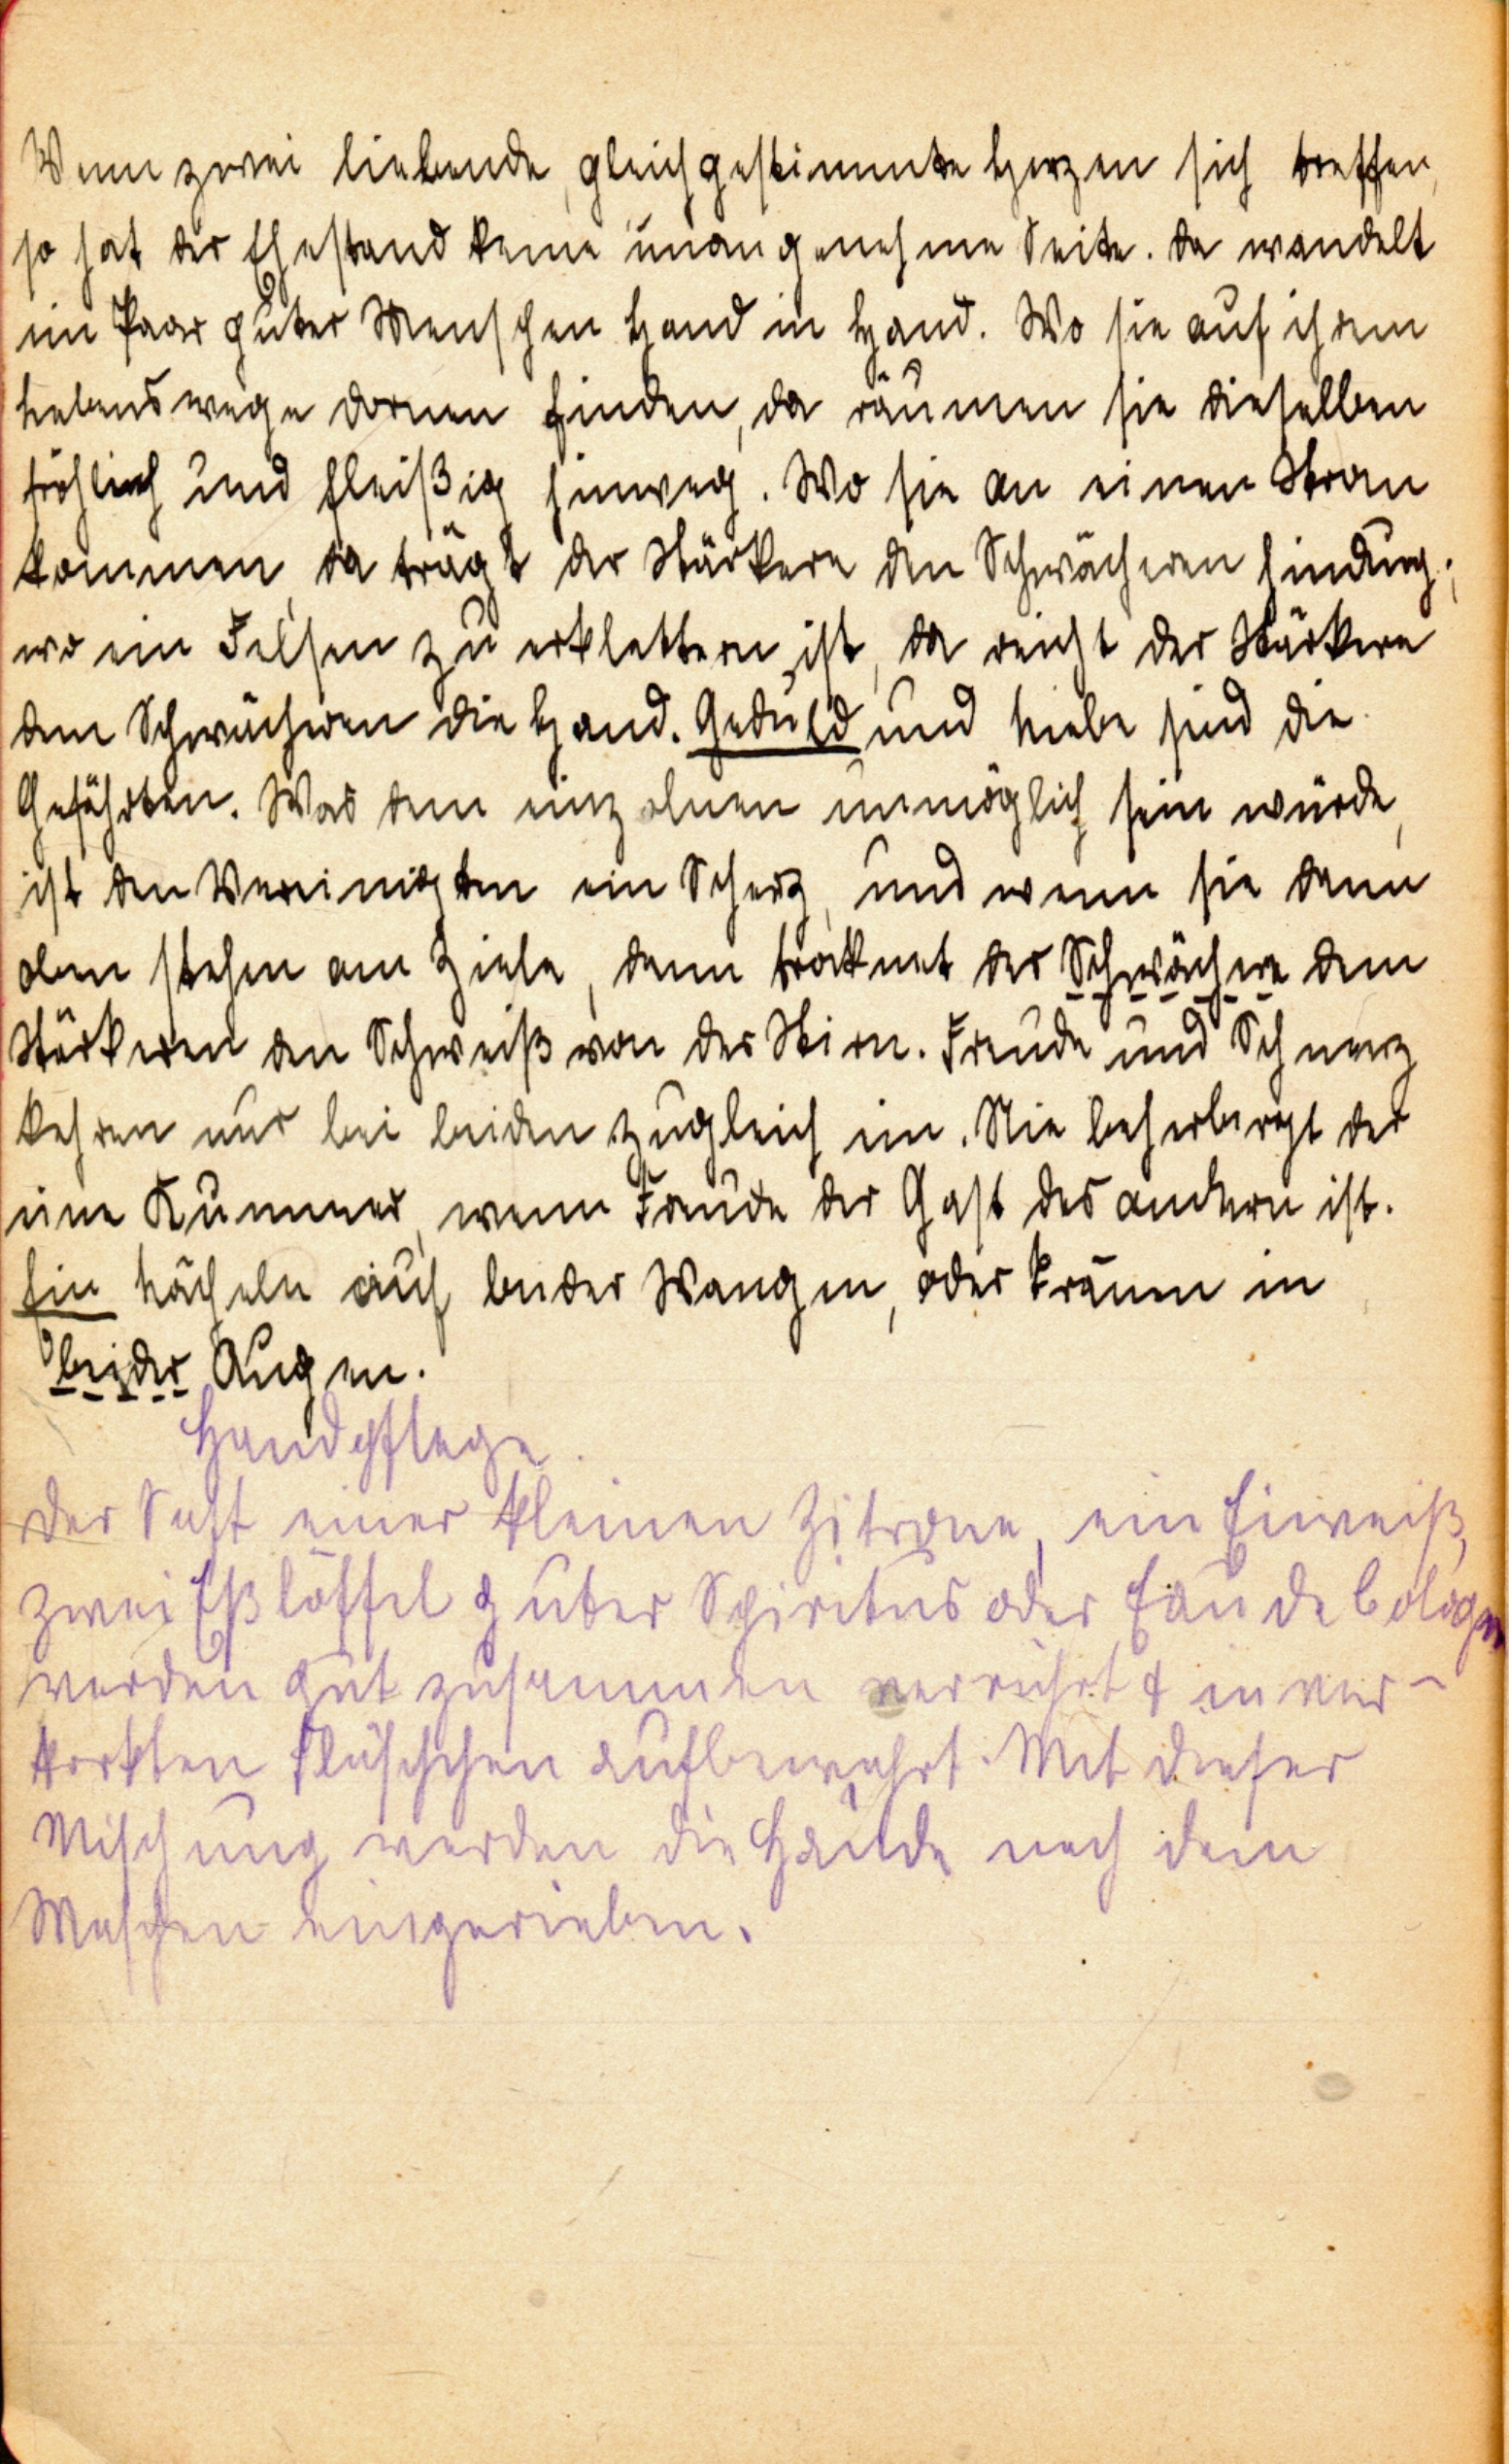 Wenn zwei liebende, gleichgestimmte Herzen sich treffen,
so hat der Ehestand keine unangenehme Seite. Da wandelt
ein Paar guter Menschen Hand in Hand. Wo sie auf ihrem
Lebenswege Dornen finden, da räumen sie dieselben
fröhlich und fleißig hinweg. Wo sie an einen Strom
kommen, da trägt der Stärkere den Schwächeren hindurch;
wo ein Felsen zu erklettern ist, da reicht der Stärkere
dem Schwächeren die Hand. Geduld und Liebe sind die
Gefährten. Was dem einzelnen unmöglich sein würde,
ist den Vereinigten ein Scherz, und wenn sie dann
oben stehen am Ziele, dann trocknet der Schwächere dem
Stärkeren den Schweiß von der Stirn. Freude und Schmerz
kehren nur bei beiden zugleich ein. Nie beherbergt der
eine Kummer, wenn Freude der Gast des andern ist.
Ein Lächeln auf beider Wangen, oder Tränen in
beider Augen.
Handpflege.
Der Saft einer kleinen Zitrone, ein Eiweiß,
zwei Eßlöffel guter Spiritus oder Eau de Cologne
werden gut zusammen verrührt & in ver-
korkten Fläschchen aufbewahrt. Mit dieser
Mischung werden die Hände nach dem
Waschen eingerieben.